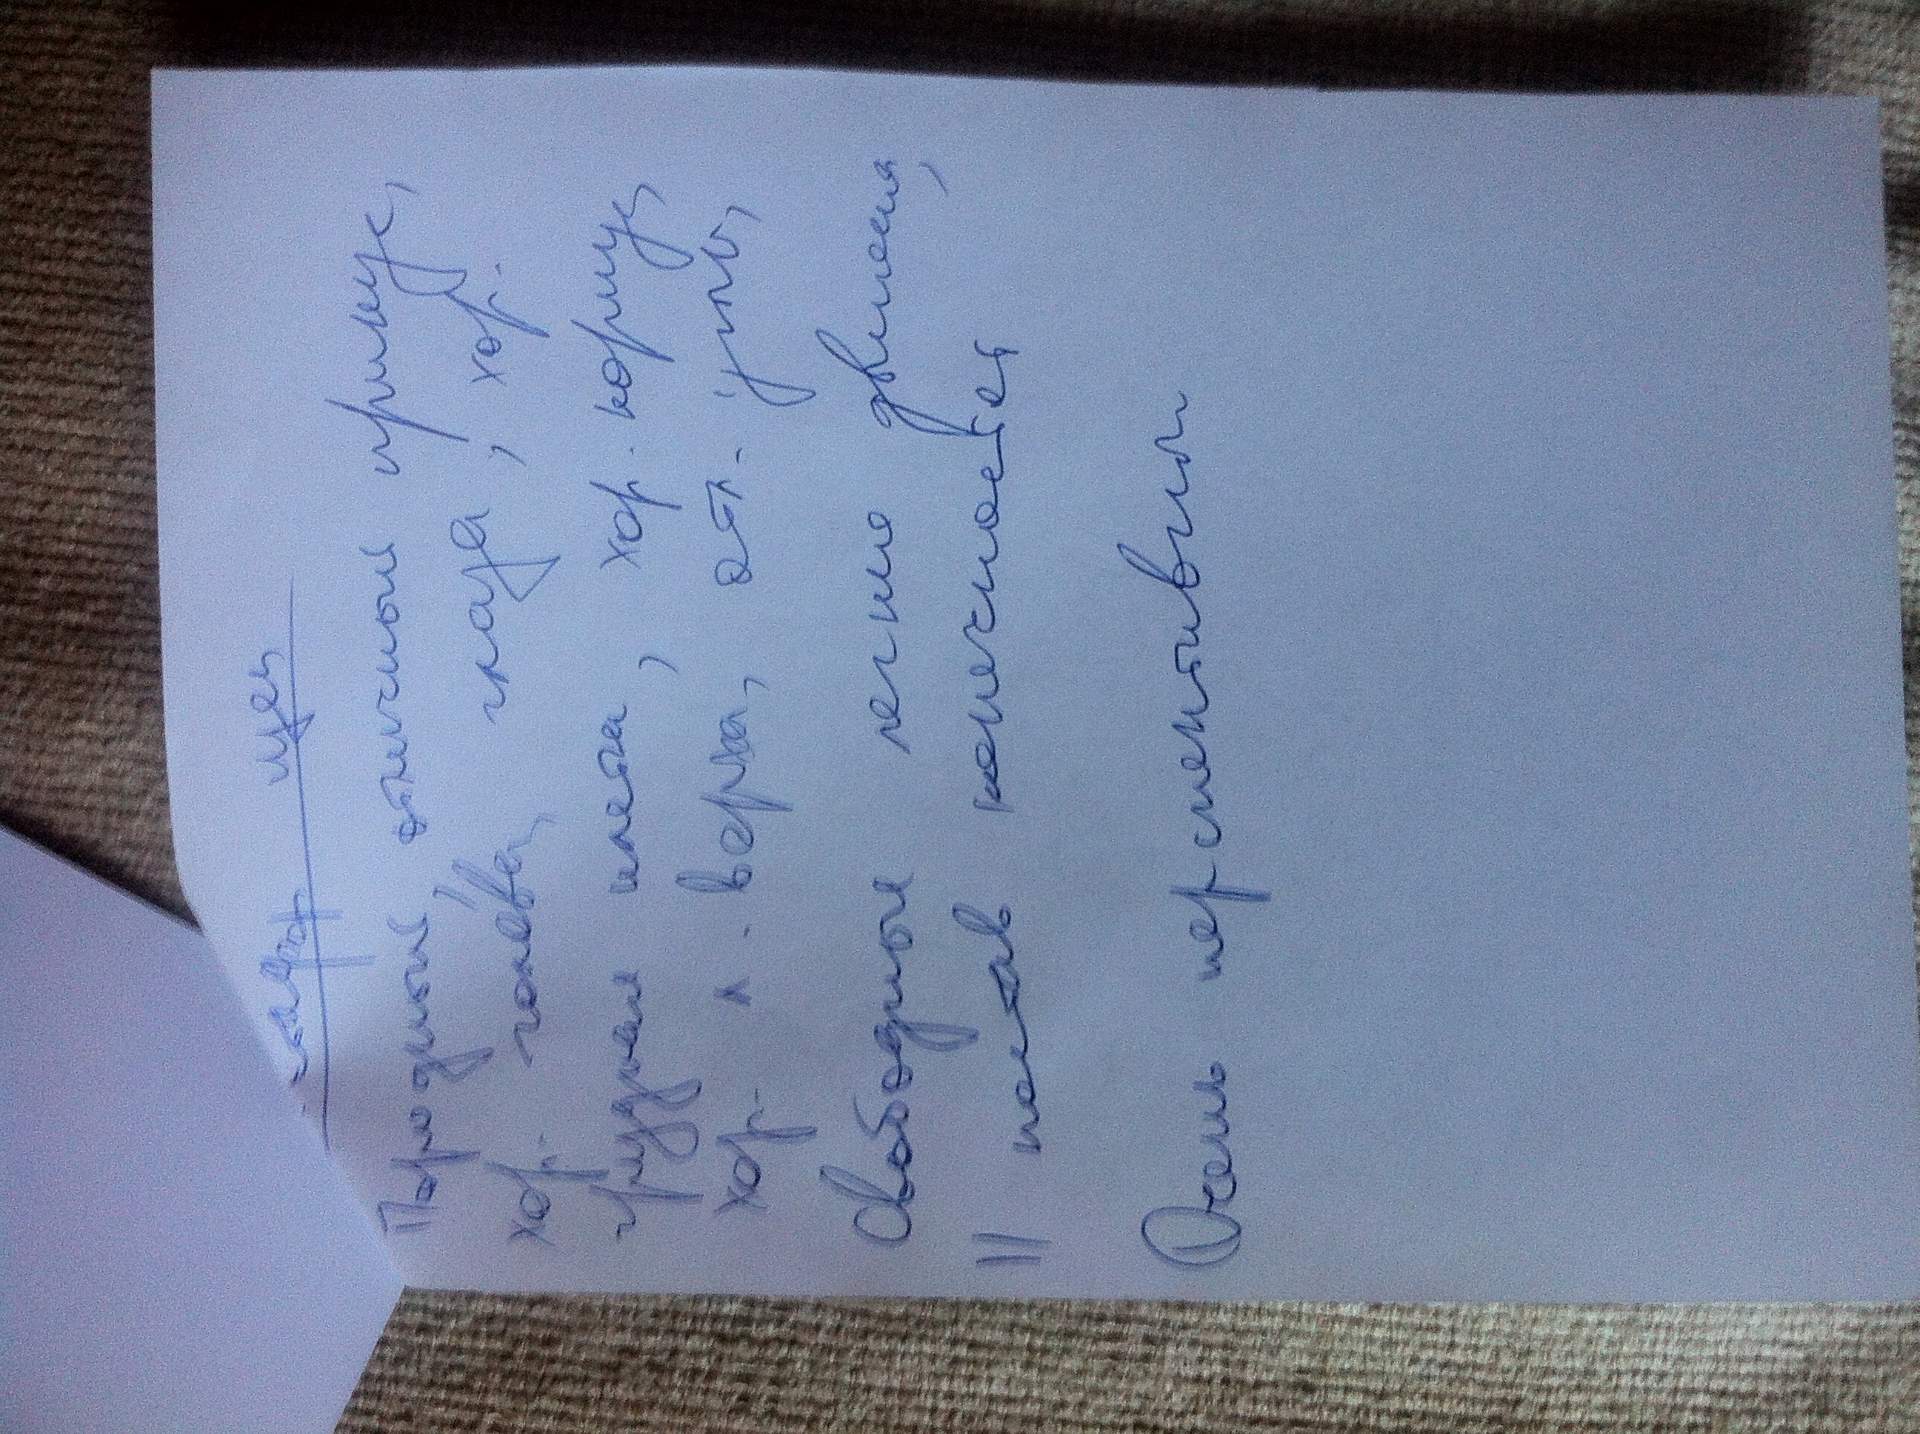 щен
Породный, отличный прикус,
хор. голова, глаза, хор.
грудная клетка, хор. корпус,
хор. л. верха, отл. углы,
Свободные легкие движения,
II постав конечностей
Очень перспективный